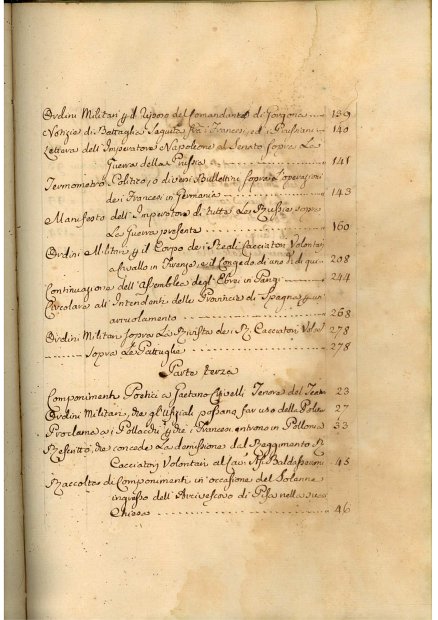 Ordini Militari p il Riposo del Comandante di Gorgona 139
Notizie di Battaglia Seguita fra i Francesi, ed i Prussiani 140
Lettera dell' Imperatore Napoleone al Senato sopra La
Guerra della Prussia 141
Termometro Politico, o diversi Bullettini sopra L'operazioni
dei Francesi in Germania 143
Manifesto dell' Imperatore di tutte Le Russie sopra
La Guerra presente 160
Ordini Militari p il Corpo dei Reali Cacciatori Volontari
a Cavallo in Firenze, e il Congedo di uno di 208
Continuazione dell' Assemblea degl' Ebrei in Parigi 244
Circolare all' Intendenti delle Provincie di Spagna p un
arruolamento 268
Ordini Militari sopra La Rivista dei R. Cacciatori Volont 278
sopra Le Pattuglie 278
Parte terza
Componimenti Poetici a Gaetano Tenore del Teatro 23
Ordini Militari, che gl'Uffiziali possano far uso della 27
Proclama a i Pollacchi p che i Francesi entrono in Pollonia 33
Rescritto, che concede La demissione del Reggimento R.
Cacciatori Volontari al Cav. Baldasseroni 45
Raccolta di Componimenti in occasione del Solenne
ingresso dell' Arcivescovo di Pisa nella sua
Chiesa 46